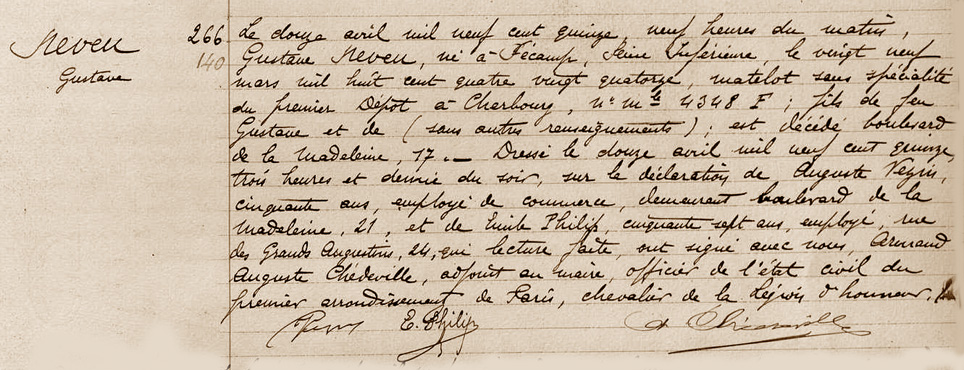 Neveu
Gustave
266
140
Le douze avril mil neuf cent quinze, neuf heures du matin,
Gustave Neveu, né à Fécamp, Seine Inférieure, le vingt neuf
mars mil huit cent quatre vingt quatorze, matelot sans spécialité
du premier Dépôt à Cherbourg, n° mle 4348 F ; fils de feu
Gustave et de (sans autres renseignements) ; est décédé boulevard
de la Madeleine, 17. — Dressé le douze avril mil neuf cent quinze,
trois heures et demie du soir, sur la déclaration de Auguste
cinquante ans, employé de commerce, demeurant boulevard de la
Madeleine, 21, et de Emile Philip, cinquante sept ans, employé, rue
des Grands Augustins, 24, qui lecture faite, ont signé avec nous, Armand
Auguste Chédeville, adjoint au maire, officier de l'état civil du
premier arrondissement de Paris, chevalier de la Légion d'honneur.
E. Philip